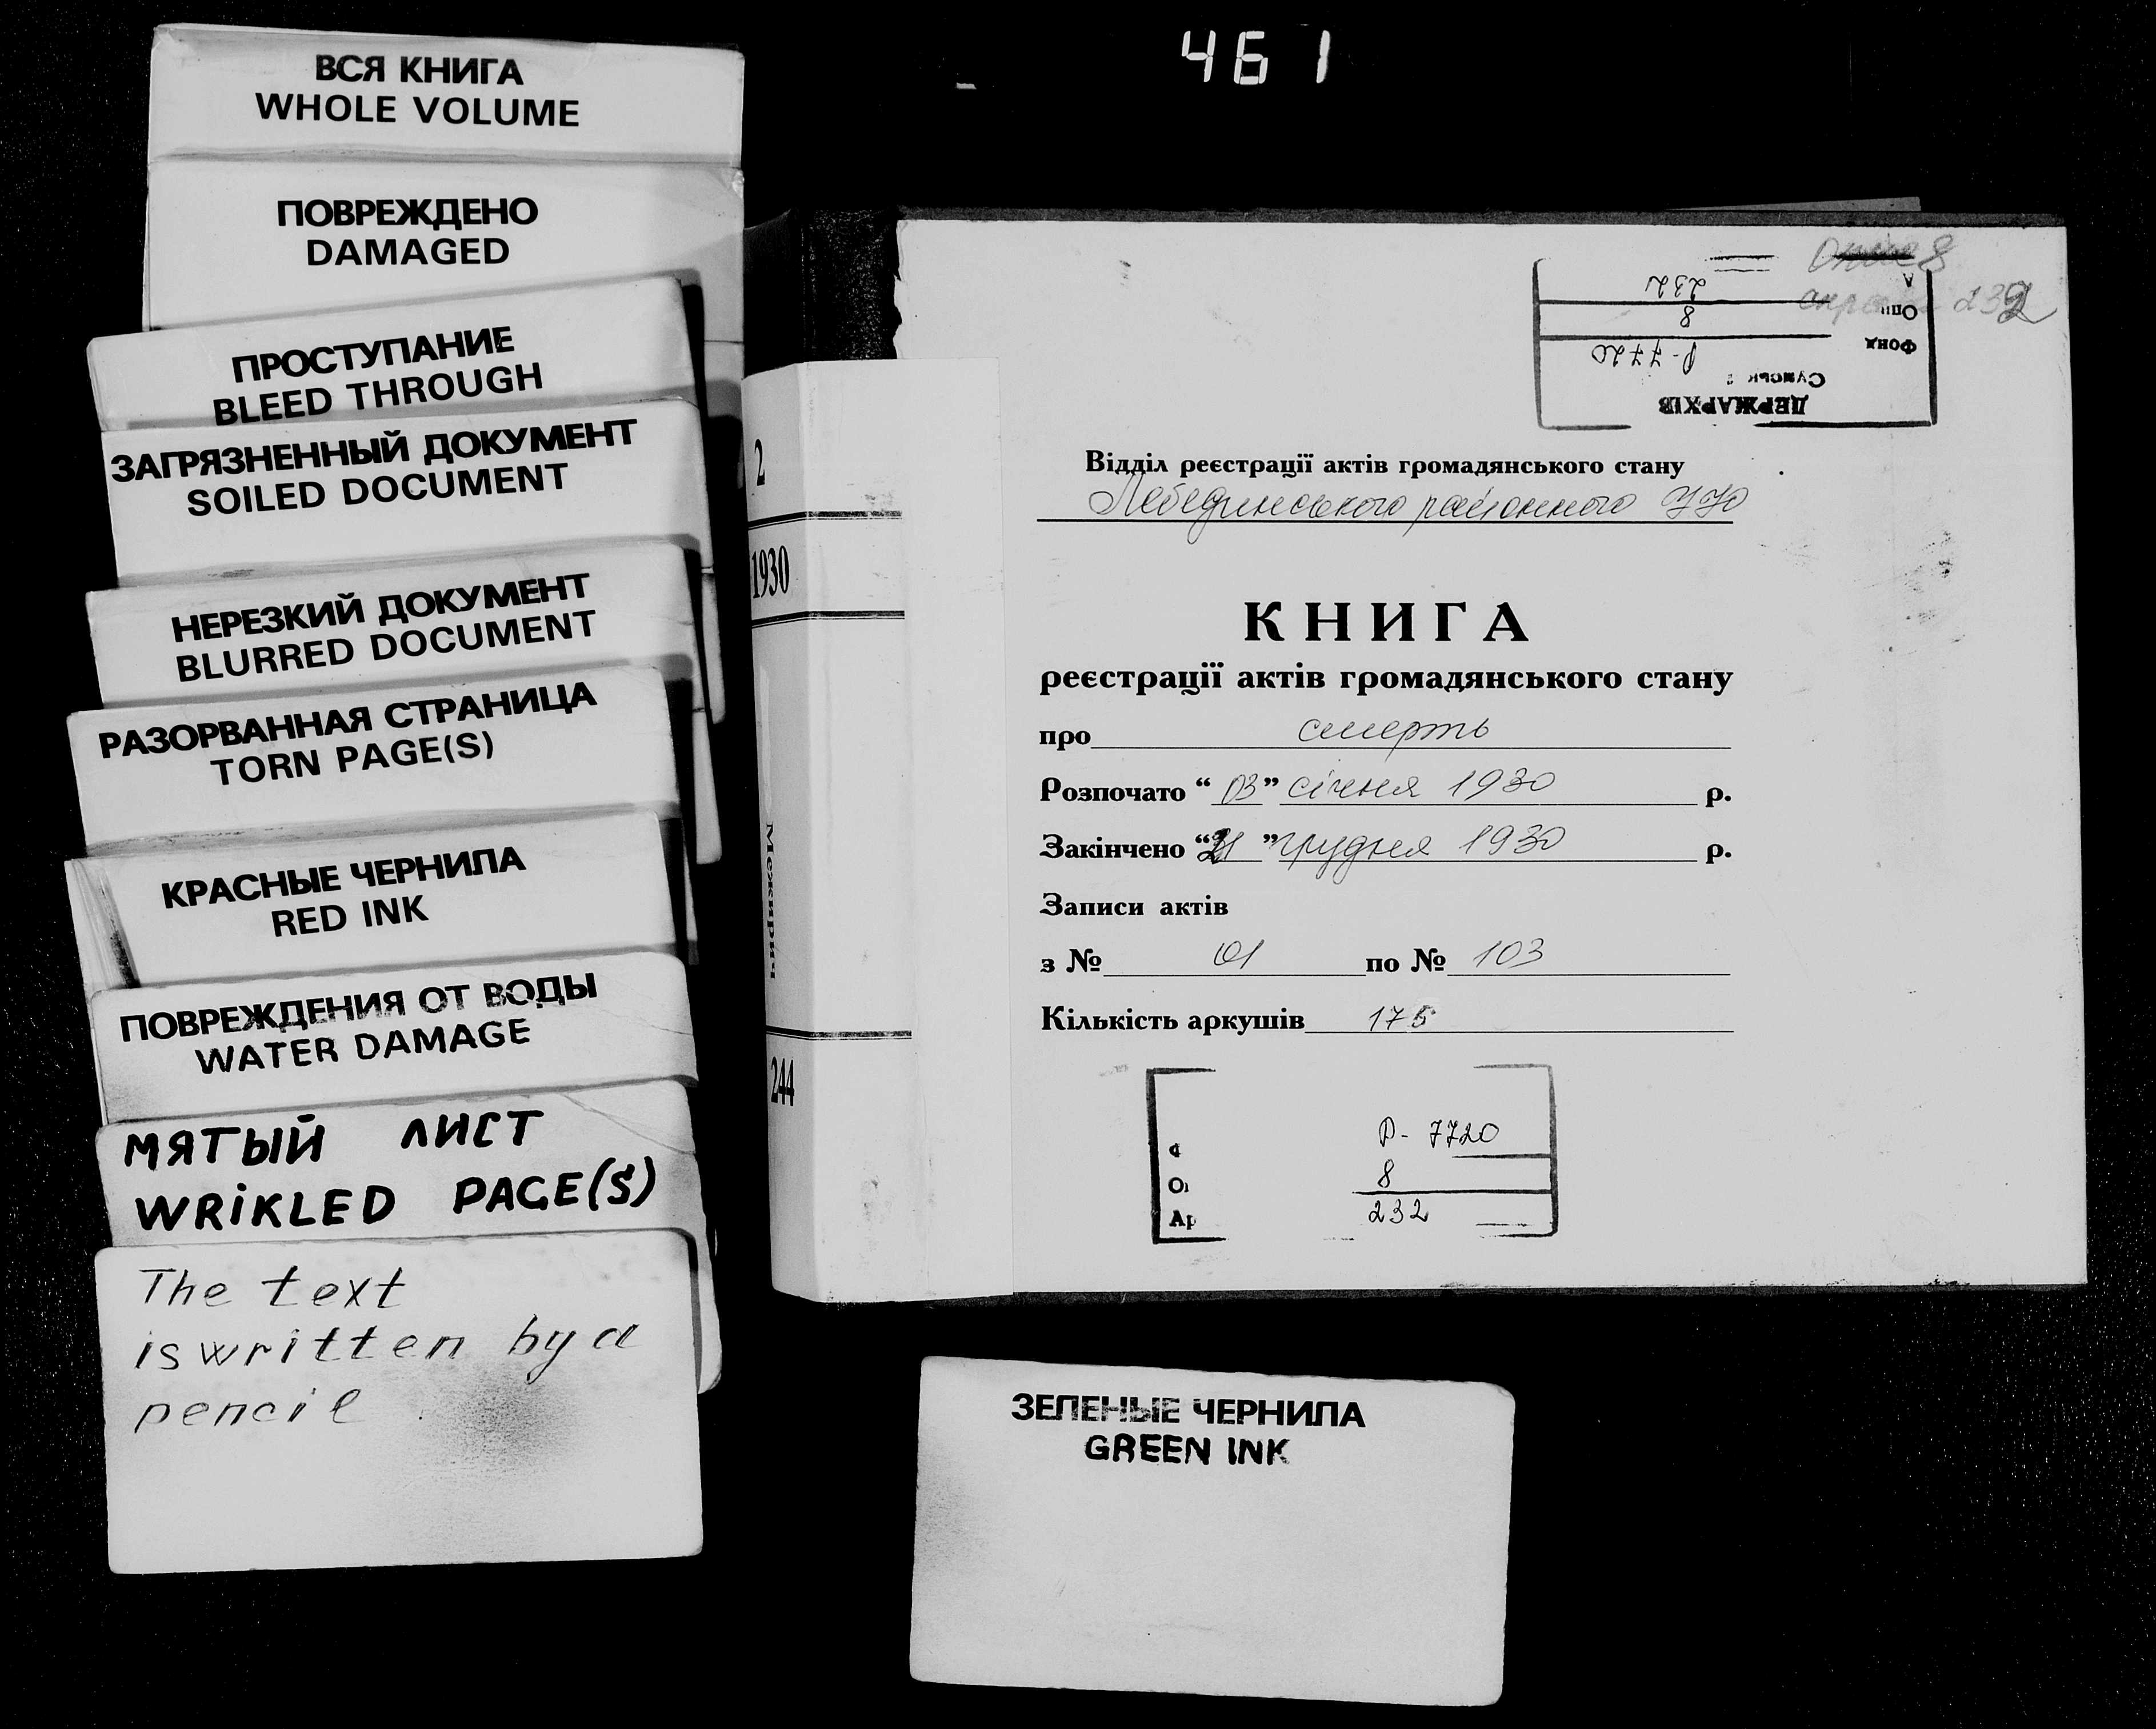 461
ВСЯ КНИГА
WHOLE VOLUME
ПОВРЕЖДЕНО
DAMAGED
ПРОСТУПАНИЕ
BLEED THROUGH
ЗАГРЯЗНЕННЫЙ ДОКУМЕНТ
SOILED DOCUMENT
НЕРЕЗКИЙ ДОКУМЕНТ
BLURRED DOCUMENT
РАЗОРВАННАЯ СТРАНИЦА
TORN PAGE(S)
КРАСНЫЕ ЧЕРНИЛА
RED INK
ПОВРЕЖДЕНИЯ ОТ ВОДЫ
WATER DAMAGE
МЯТЫЙ ЛИСТ
WRIKLED PAGE(S)
The text
is written by a
pencil
2
1930
Межирич
244
8
232
ДЕРЖАРХІВ
Сумськ
Фонд Р-7720
Опи 8
А 232
Відділ реєстрації актів громадянського стану
Лебединського районного УЮ
КНИГА
реєстрації актів громадянського стану
про смерть
Розпочато “03” січня 1930 р.
Закінчено “31” грудня 1930 р.
Записи актів
з № 01 по № 103
Кількість аркушів 175
Р-7720
О 8
Ар 232
ЗЕЛЕНЫЕ ЧЕРНИЛА
GREEN INK